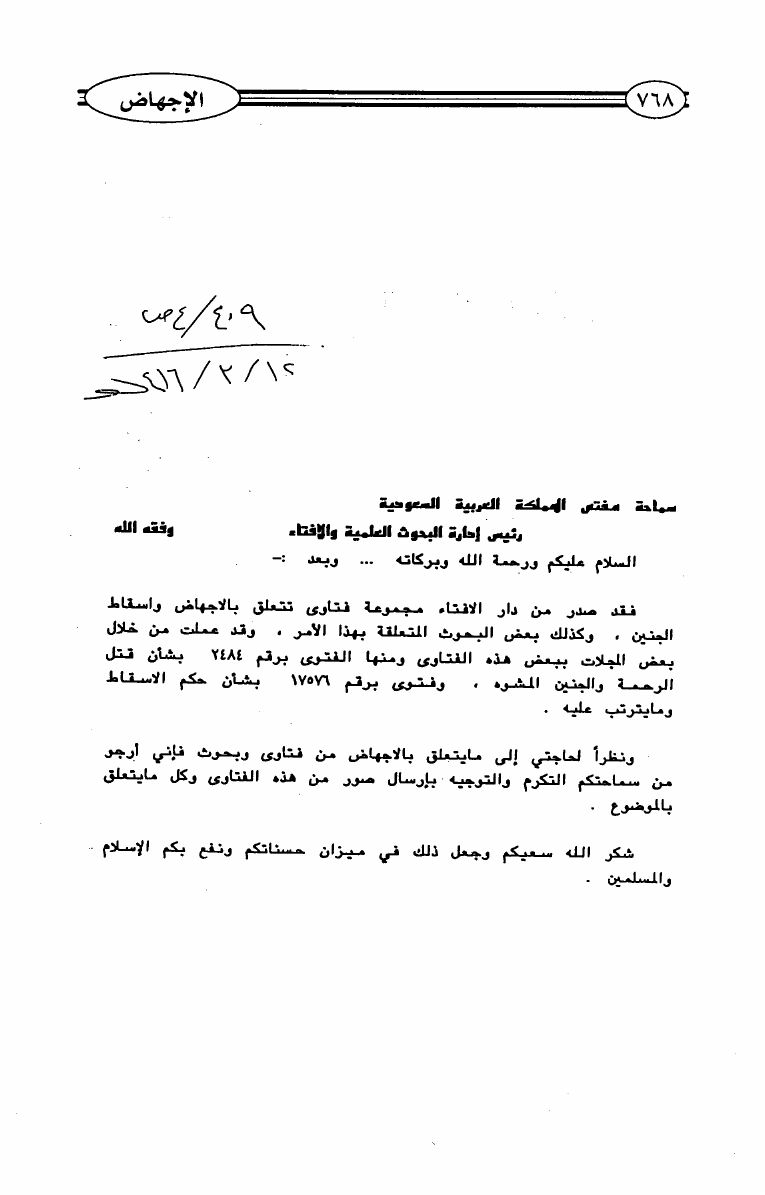 ٧٦٨
الإجهاض
٤٠٩/٤ص
١٢/٢/٤١٦
سماحة مفتي المملكة العربية السعودية
رئيس إدارة البحوث العلمية والافتاء وفقه الله
السلام عليكم ورحمة الله وبركاته ... وبعد :-
فقد صدر من دار الافتاء مجموعة فتاوى تتعلق بالاجهاض واسقاط
الجنين ، وكذلك بعض البحوث المتعلقة بهذا الأمر ، وقد عملت من خلال
بعض المجلات ببعض هذه الفتاوى ومنها الفتوى برقم ٢٤٨٤ بشأن قتل
الرحمة والجنين المشوه ، وفتوى برقم ١٧٥٧٦ بشأن حكم الاسقاط
ومايترتب عليه .
ونظراً لحاجتي إلى مايتعلق بالاجهاض من فتاوى وبحوث فإني أرجو
من سماحتكم التكرم والتوجيه بإرسال صور من هذه الفتاوى وكل مايتعلق
بالموضوع .
شكر الله سعيكم وجعل ذلك في ميزان حسناتكم ونفع بكم الإسلام
والمسلمين .